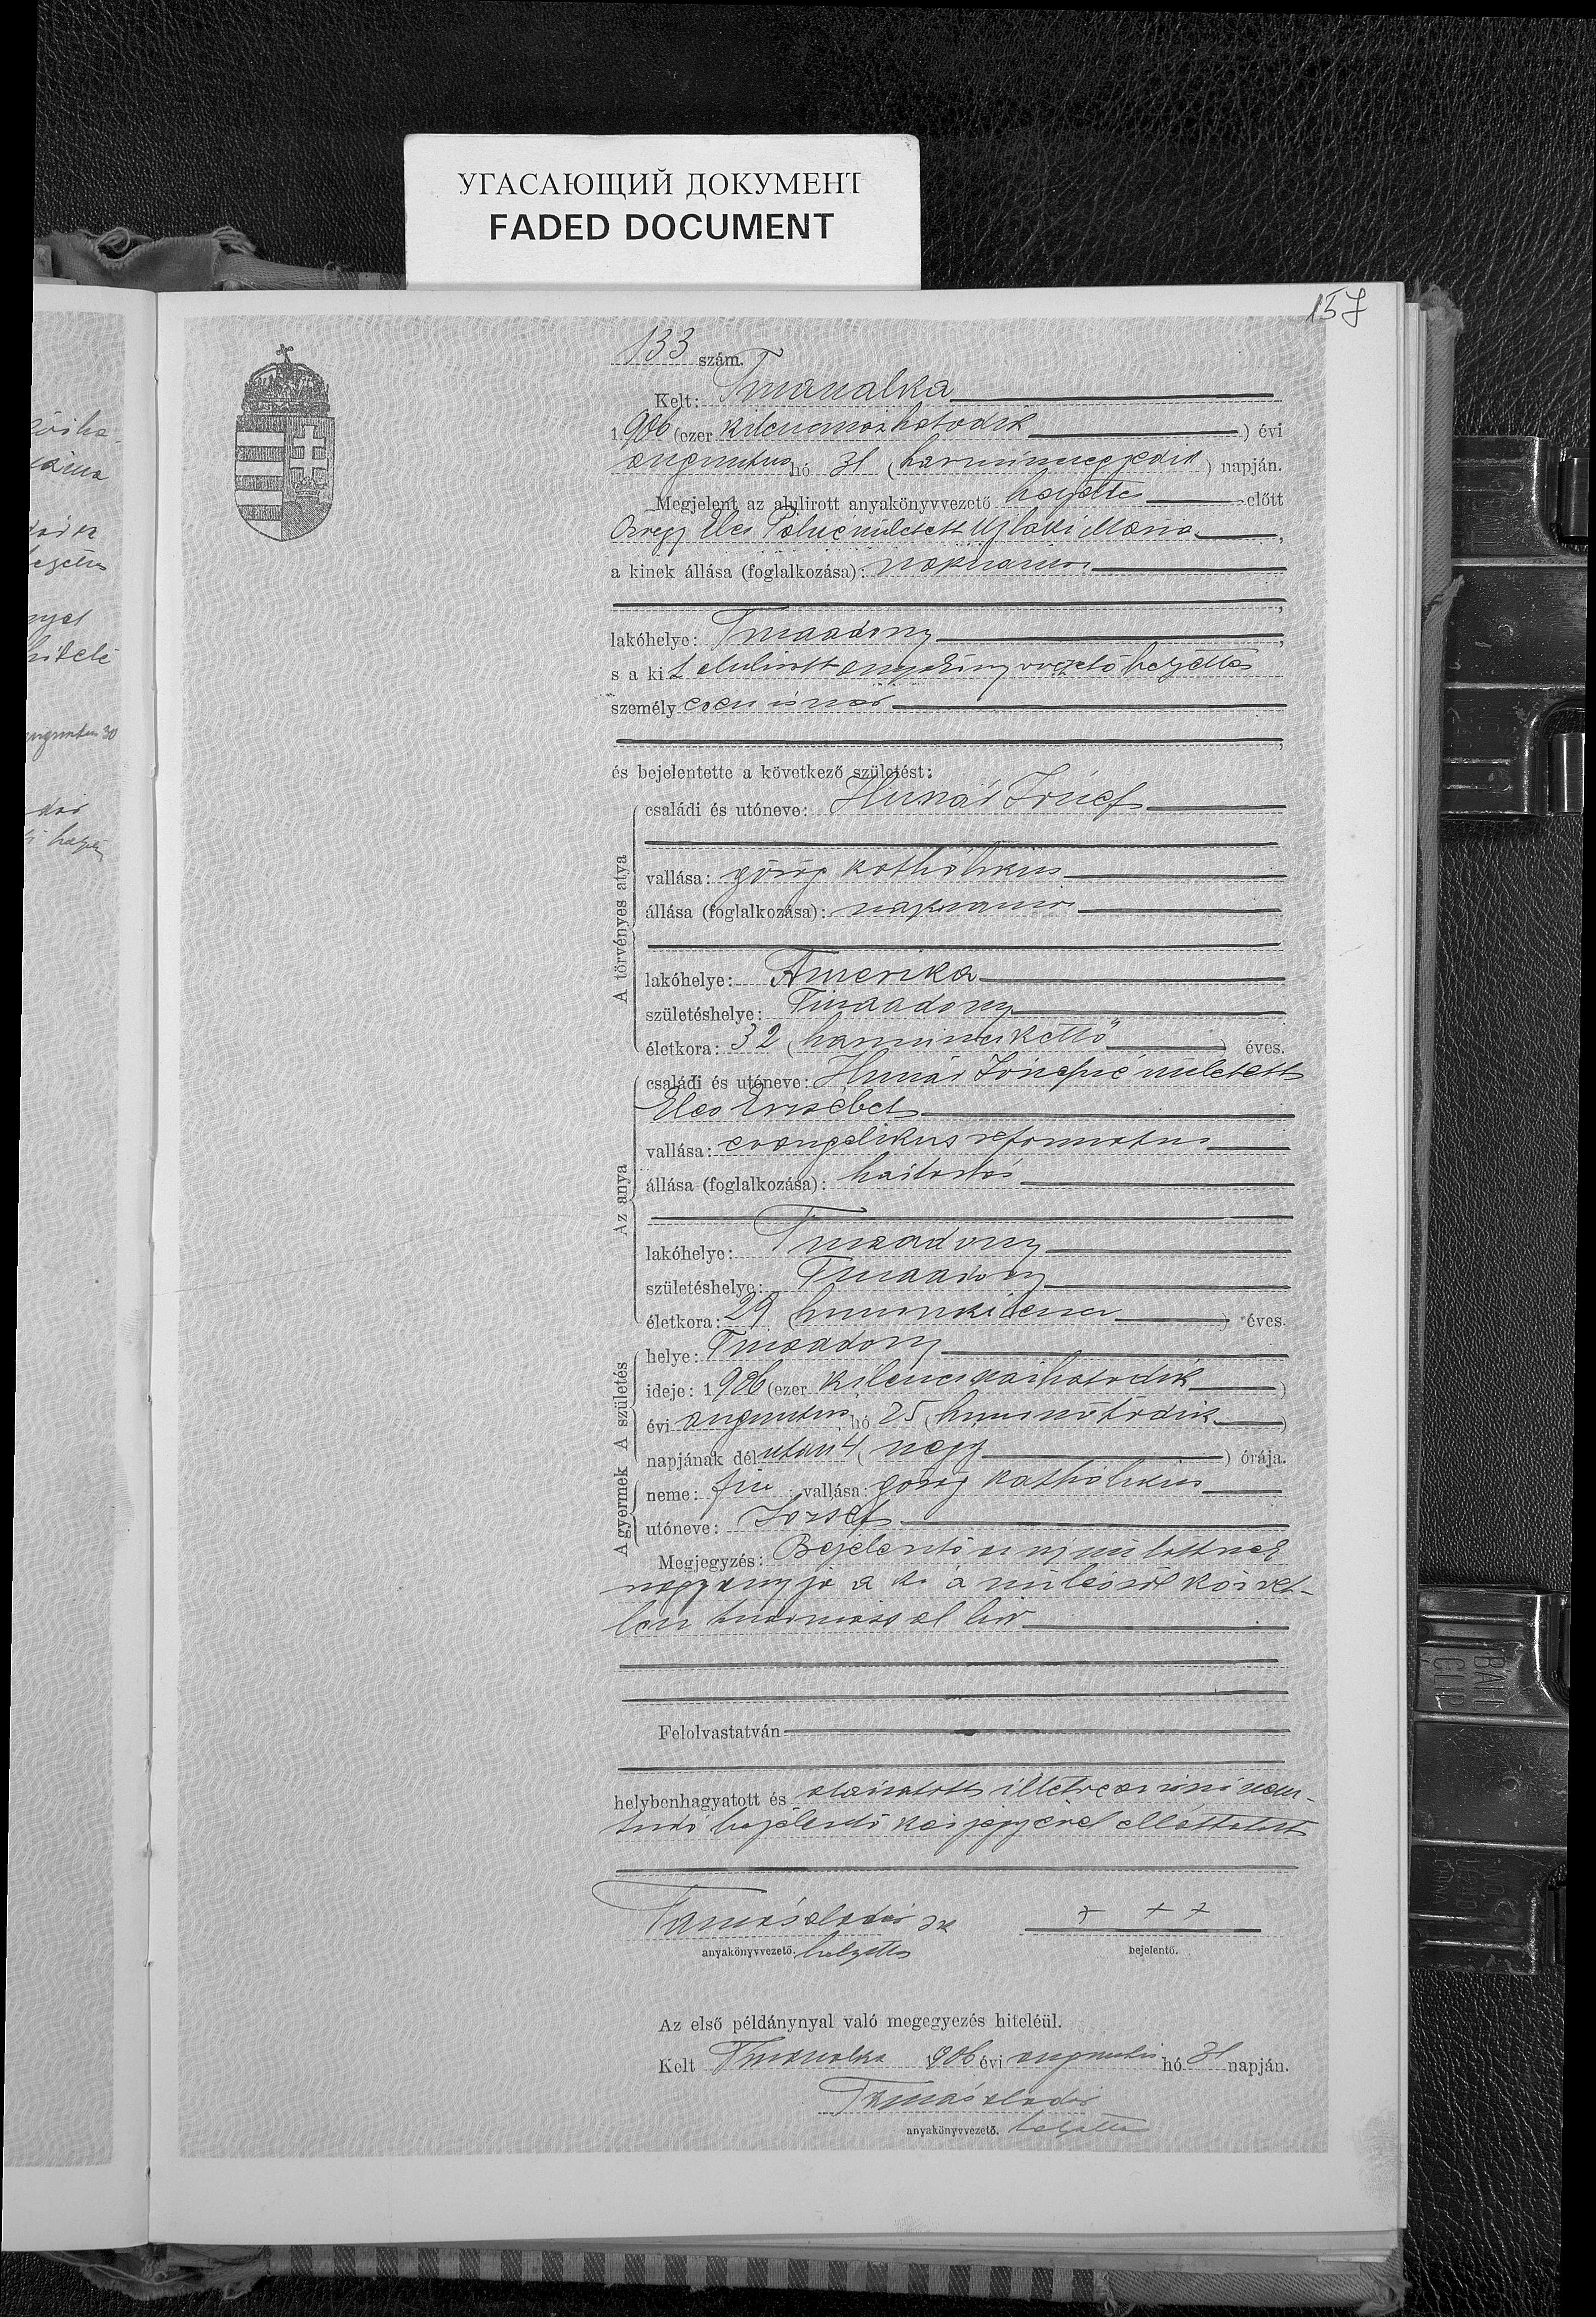 УГАСАЮЩИЙ ДОКУМЕНТ
FADED DOCUMENT
157
133 szám.
Kelt:
1906 (ezer kilenczszázhatodik) évi
augusztus hó 31 (harminczegyedik) napján.
Megjelent az alulirott anyakönyvvezető helyettes előtt
Öregg Éles Pálné született Ujlaki Mária,
a kinek állása (foglalkozása): napszámos
lakóhelye: Tiszaadony,
s a kit alulirott anyakönyvvezető helyettes
személyesen ismer
és bejelentette a következő születést:
A törvényes atya
családi és utóneve: József
vallása: görög katholikus
állása (foglalkozása): napszámos
lakóhelye: Amerika
születéshelye: Tiszaadony
életkora: 32 (harminczkettő) éves.
Az anya
családi és utóneve: Józsefné született
Éles Erzsébet
vallása: evangelikus reformatus
állása (foglalkozása): háztartás
lakóhelye: Tiszaadony
születéshelye: Tiszaadony
életkora: 29 (huszonkilencz) éves.
A születés
helye: Tiszaadony
ideje: 1906 (ezer kilenczszázhatodik)
évi augusztus hó 25 (huszonötödik)
napjának délután 4 (négy) órája.
A gyermek
neme: fiu; vallása: görög katholikus
utóneve: József
Megjegyzés: Bejelentő az ujszülöttnek
nagyanyja a ki a szülésről közvet-
len tudomással bir
Felolvastatván
helybenhagyatott és aláiratott illetve az irni nem
tudó bejelentő kézjegyével elláttatott
Tamás Aladár sk + + +
anyakönyvvezető. helyettes bejelentő.
Az első példánynyal való megegyezés hiteléül.
Kelt 1906 évi augusztus hó 31 napján.
Tamás Aladár
anyakönyvvezető. helyettes
BAU
CLIP